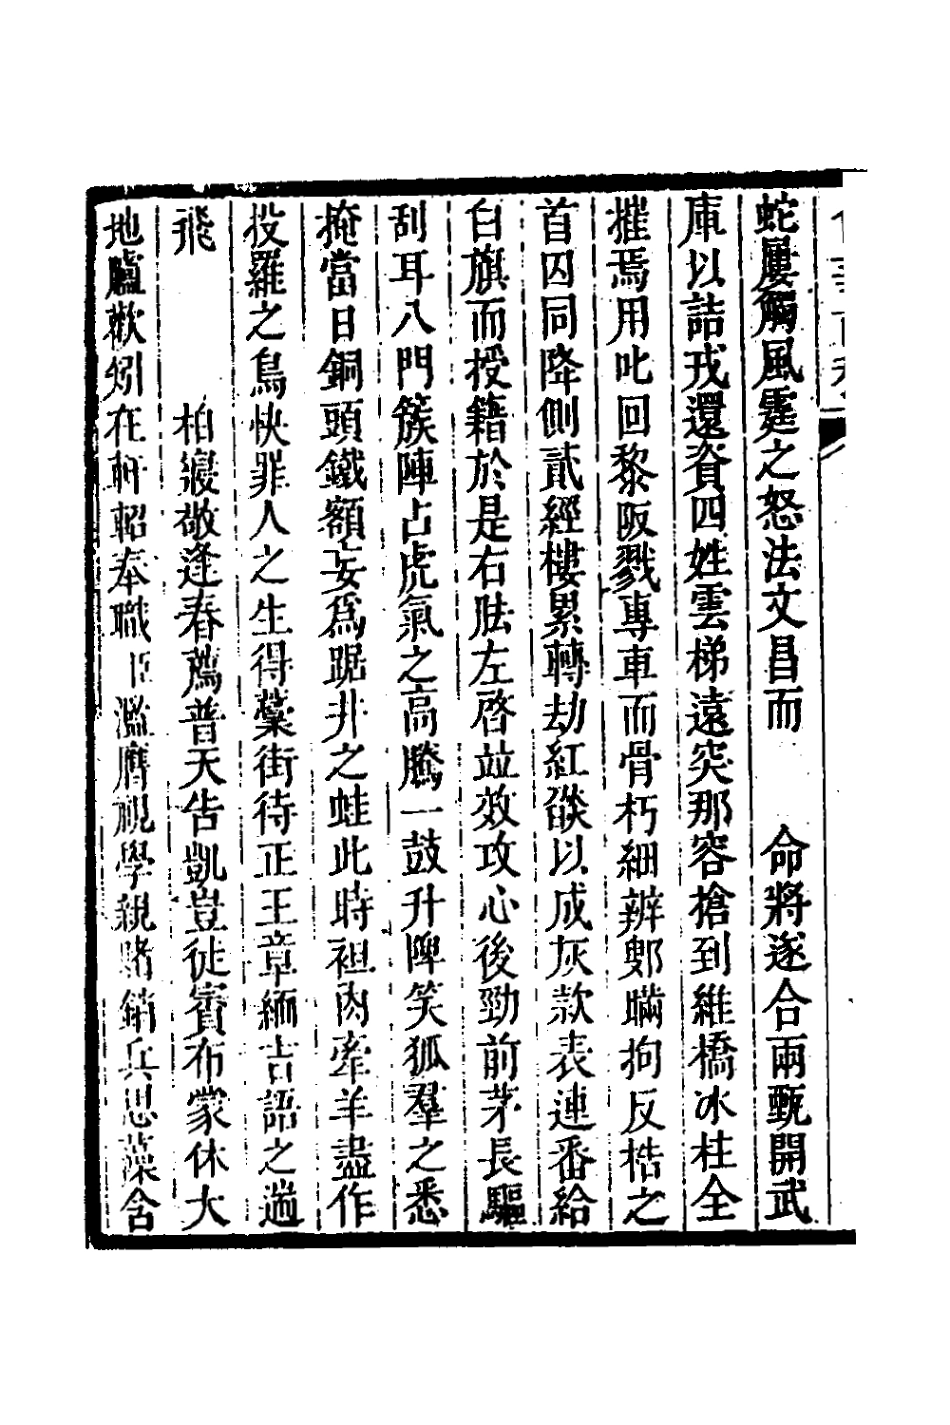 蛇屢觸風霆之怒法文昌而　命將遂合兩甄開武
庫以詰戎還資四姓雲梯遠突那容搶到維橋冰柱全
摧焉用叱回黎阪戮專車而骨朽細辨鄋瞞拘反梏之
首囚同降側貳經樓累轉劫紅燄以成灰款表連番給
白旗而授籍於是右胠左啓竝效攻心後勁前茅長驅
刮耳八門簇陣占虎氣之高騰一鼓升陴笑狐羣之悉
掩當日銅頭鐵額妄爲踞井之蛙此時袒肉牽羊盡作
投羅之鳥快罪人之生得藁街待正王章緬吉語之遄
飛　柏寢敬逢春薦普天告凱豈徒賓布蒙休大
地臚歡矧在軒軺奉職臣濫膺視學親賭銷兵思藻含